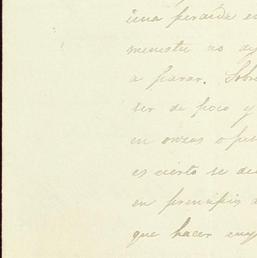 una perdida e
menester no de
a parar. Sobre
ser de poco y
en onzas o pe
es cierto se de
en principio a
que hacer